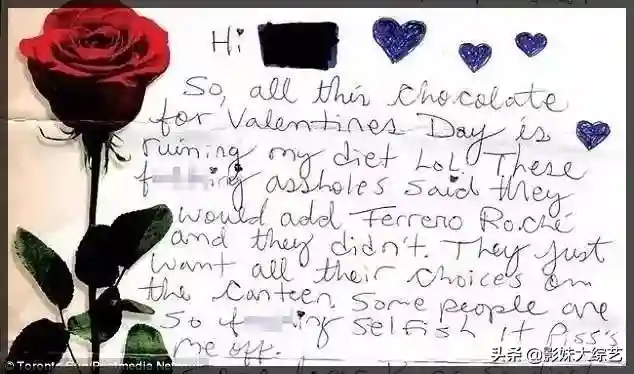 Hi
So, all this chocolate
for Valentines Day is
ruining my diet LOL These
f ing assholes said they
would add Ferrero Roché
and they didn't. They just
want all their choices on
the canteen. Some people are
so f ing selfish it piss's
me off.
头条 @影妹大综艺